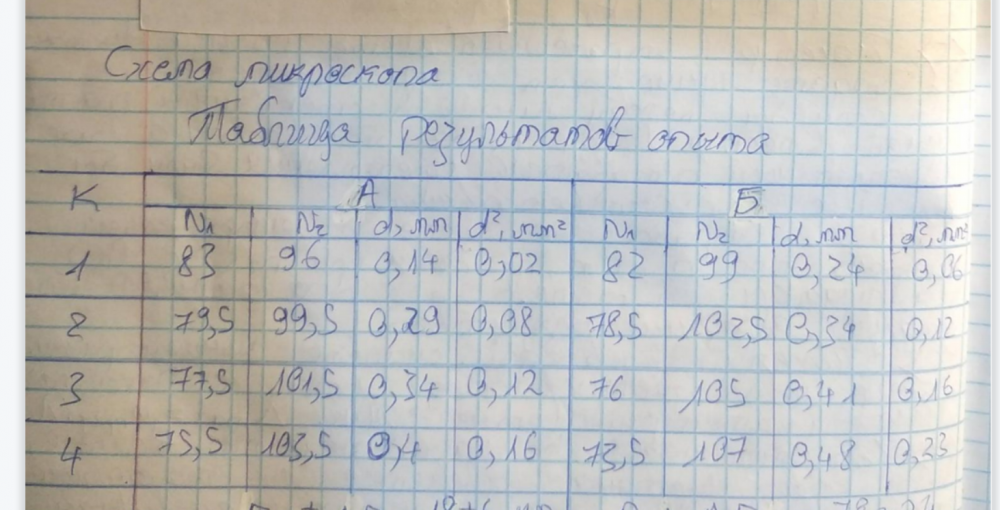 Схема микроскопа
Таблица результатов опыта
К А Б
N₁ N₂ d, мм d², мм² N₁ N₂ d, мм d², мм²
1 83 96 0,14 0,02 82 99 0,24 0,06
2 79,5 99,5 0,29 0,08 78,5 102,5 0,34 0,12
3 77,5 101,5 0,34 0,12 76 105 0,41 0,16
4 75,5 103,5 0,4 0,16 73,5 107 0,48 0,23